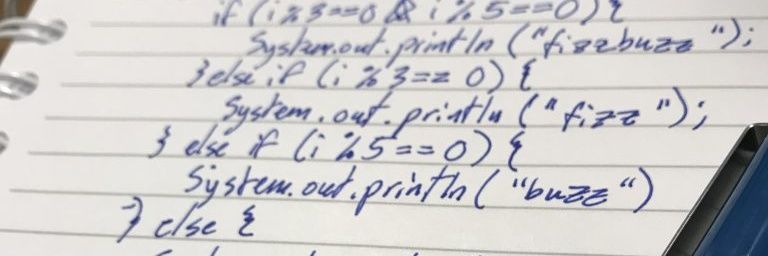 if (i%3==0 & i%5==0) {
System.out.println ("fizzbuzz");
}else if (i %3== 0) {
System.out.println ("fizz");
} else if (i %5== 0) {
System.out.println ("buzz")
} else {